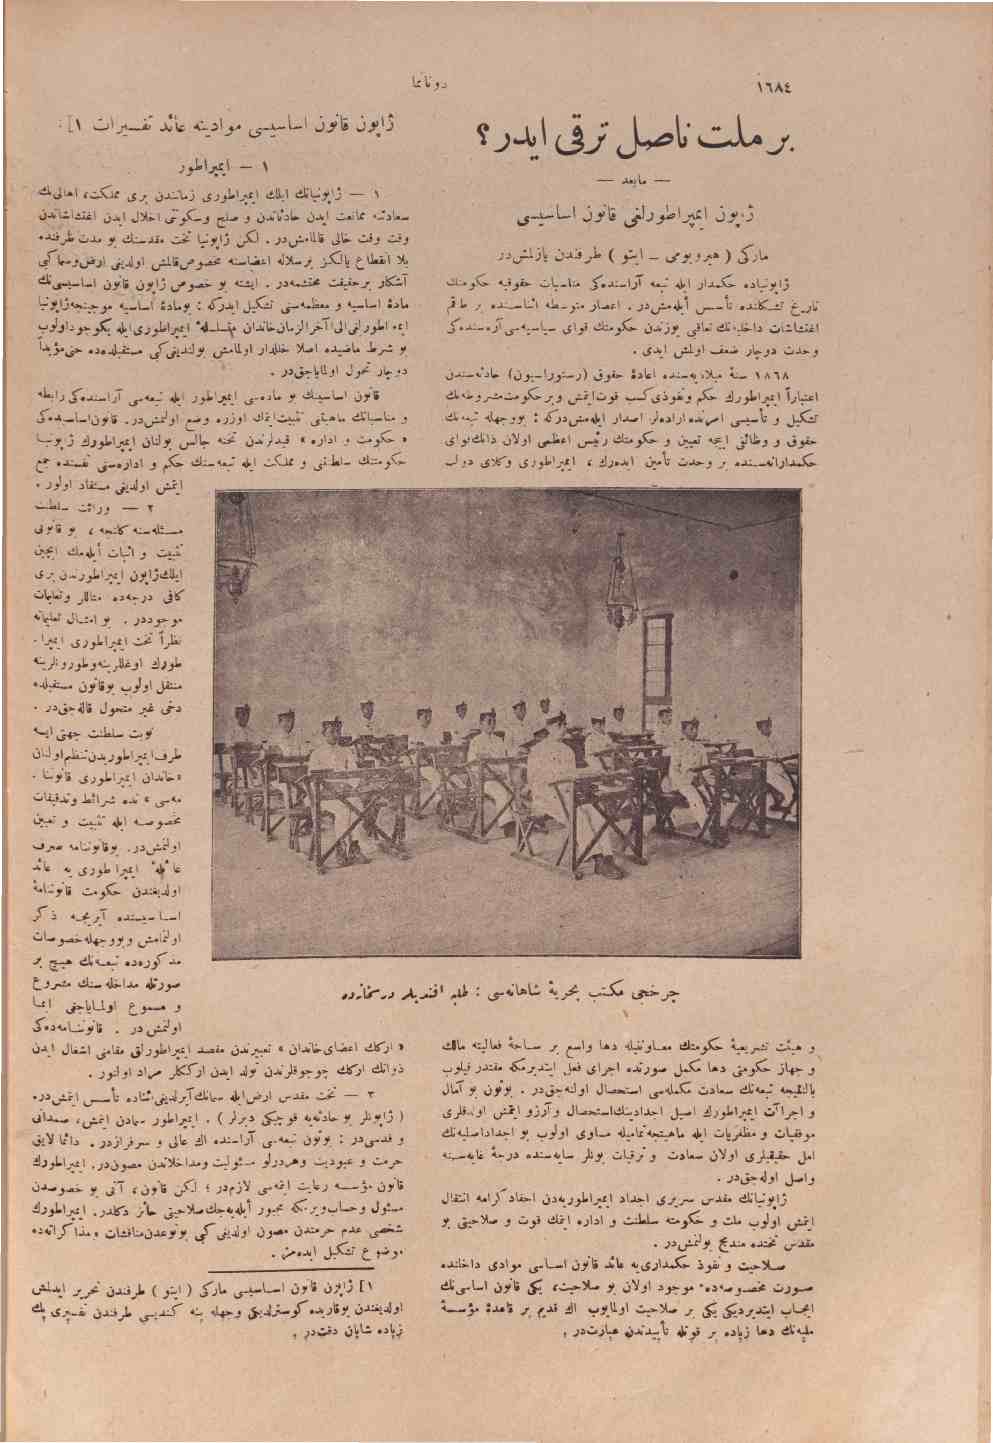 ١٦٨٤
دونانما
بر ملت ناصل ترقی ایدر؟
— مابعد —
ژاپون ایمپراطورلغی قانون اساسیسی
مارکی ( هیروبومی _ ایتو ) طرفندن یازلمشدر
ژاپونیاده حکمدار ایله تبعه آراسنده‌کی مناسبات حقوقیه حکومتك
تاریخ تشکلنده تأسس أیله‌مشدر . اعصار متوسطه اثناسنده بر طاقم
اغتشاشات داخلیه‌نك تعاقبی یوزندن حکومتك قوای سیاسیه‌سی آره‌سنده‌کی
وحدت دوچار ضعف اولمش ایدی .
١٨٦٨ سنهٔ میلادیه‌سنده اعادهٔ حقوق (رستوراسیون) حادثه‌سندن
اعتباراً ایمپراطورك حکم ونفوذی کسب قوت‌ایتمش وبر حکومت‌مشروطه‌نك
تشکیل و تأسیسی امرنده اراده‌لر اصدار ایله‌مش‌درکه : بووجهله تبعه‌نك
حقوق و وظائفی ایجه تعیین و حکومتك رئیس اعظمی اولان ذاتك‌لوای
حکمدارانه‌سنده بر وحدت تأمین ایده‌رك ، ایمپراطوری وکلای دولت
چرخجی مکتب بحریهٔ شاهانه‌سی : طلبه افندیلر درسخانه‌ده
و هیئت تشریعیهٔ حکومتك معـاونتیله دها واسع بر ساحهٔ فعالیته مالك
و جهاز حکومتی دها مکمل صورتده اجرای فعل ایتدیرمکه مقتدر قیلوب
بالنتیجه تبعه‌نك سعادت مکمله‌سی استحصال اولنه‌جقدر . بوتون بو آمال
و اجراآت ایمپراطورك اصیل اجدادینك‌استحصال وآرزو ایتمش اولدقلری
موفقیات و مظفریات ایله ماهیتجه‌تمامیله مساوی اولوب بو اجداداصلیه‌نك
امل حقیقیلری اولان سعادت و ترقیات بونلر سایه‌سنده درجهٔ غایه‌سـنه
واصل اوله‌جقدر .
ژاپونیانك مقدس سریری اجداد ایمپراطوریه‌دن احفاد کرامه انتقال
ایتمش اولوب ملت و حکومته سلطنت و اداره ایتمك قوت و صلاحیتی بو
مقدس تختده مندمج بولنمشدر .
صلاحیت و نفوذ حکمداری‌یه عائد قانون اسـاسی موادی داخلنده
صورت مخصوصه‌ده موجود اولان بو صلاحیت، یکی قانون اساسی‌نك
ایجاب ایتدیردیکی یکی بر صلاحیت اولمایوب اك قدیم بر قاعدهٔ مؤسسهٔ
ملیه‌نك دها زیاده بر قوتله تأییدندن عبارتدر .
ژاپون قانون اساسیسی موادینه عائد تفسیرات [١ :
١ — ایمپراطور
١ — ژاپونیانك ایلك ایمپراطوری زماندن بری مملکت، اهالی‌نك
سعادتنه ممانعت ایدن حادثاتدن و صلح وسکونتی اخلال ایدن اغتشاشاتدن
وقت وقت خالی قالمامشدر . لکن ژاپونیا تخت مقدسنك بو مدت ظرفنده
بلا انقطاع یالکز بر سلاله اعضاسنه مخصوص‌قالمش اولدیغی ارض‌وسما کبی
آشکار بر حقیقت محتشمه‌در . ایشته بو خصوص ژاپون قانون اساسیسی‌نك
مادهٔ اساسیه و معظمه‌سنی تشکیل ایدرکه : بومادهٔ اساسیه موجبنجه‌ژاپونیا
ایمپراطورلغی‌الی‌آخر الزمان‌خاندان متسلسلهٔ ایمپراطوری‌ایله یکوجوداولوب
بو شرط ماضیده اصلا خللدار اولمامش بولندیغی‌کبی مستقبلده‌ده حتی‌مؤبداً
دوچار تحول اولمایاجقدر .
قانون اساسینك بو ماده‌سی ایمپراطور ایله تبعه‌سی آراسنده‌کی رابطه
و مناسباتك ماهیتنی تثبیت‌ایتمك اوزره وضع اولنمشدر. قانون‌اساسیده‌کی
« حکومت و اداره » قیدلرندن تخته جالس بولنان ایمپراطورك ژاپونیـا
حکومتنك سلطنتی و مملکت ایله تبعه‌سنك حکم و اداره‌سنی نفسنده جمع
ایتمش اولدیغی مستفاد اولور .
٢ — وراثت سلطنت
مسـئله‌سنه کلنجه ، بو قانونی
تثبیت و اثبات أیله‌مك ایچین
ایلك‌ژاپون ایمپراطورندن بری
کافی درجه‌ده مثاللر وتعلیمات
موجوددر . بو امثـال تعلیماته
نظراً تخت ایمپراطوری ایمپرا-
طورك اوغللرینه‌وطورونلرینه
منتقل اولوب بوقانون مستقبلده
دخی غیر متحول قاله‌جقدر .
نوبت سلطنت جهتی ایسه
طرف‌ایمپراطوریدن‌تنظیم‌اولنان
«خاندان ایمپراطوری قانوننا-
مه‌سی » نده شرائط وتدقیقات
مخصوصه ایله تثبیت و تعیین
اولنمشدر. بوقانوننامه صرف
عائلهٔ ایمپراطوری یه عائد
اولدیغندن حکومت قانوننامهٔ
اسـاسیسنده آیریجه ذکر
اولنمامش وبووجهله‌خصوصات
مذکوره‌ده تبعه‌نك هیچ بر
صورتله مداخله‌سنك مشروع
و مسموع اولمایاجغی ایما
اولنمشدر . قانوننامه‌ده‌کی
« ارکك اعضای‌خاندان » تعبیرندن مقصد ایمپراطورلق مقامنی اشغال ایدن
ذواتك ارکك چوجوقلرندن تولد ایدن ارککلر مراد اولنور .
٣ — تخت مقدس ارض‌ایله سمانك‌آیرلدیغی‌اثناده تأسس ایتمشدر.
( ژاپونلر بو حادثه‌یه قوجیکی دیرلر ) . ایمپراطور سمادن ایتمش، صمدانی
و قدسیدر : بوتون تبعه‌سی آراسنده اك عالی و سرفرازدر . دائما لایق
حرمت و عبودیت وهردرلو مسئولیت ومداخلاتدن مصوندر. ایمپراطورك
قانون مؤسسه رعایت ایتمه‌سی لازمدر ؛ لکن قانون، آنی بو خصوصدن
مسئول وحساب‌ویرمکه مجبور أیله‌یه‌جك‌صلاحیتی حائز دکلدر. ایمپراطورك
شخصی عدم حرمتدن مصون اولدیغی کبی بونوعدن‌مناقشات ومذاکراته‌ده
موضوع تشکیل ایده‌مز .
[١ ژاپون قانون اساسیسی مارکی ( ایتو ) طرفندن تحریر ایدلمش
اولدیغندن بوقاریده کوسترلدیکی وجهله ینه کندیسی طرفندن تفسیری پك
زیاده شایان دقتدر .